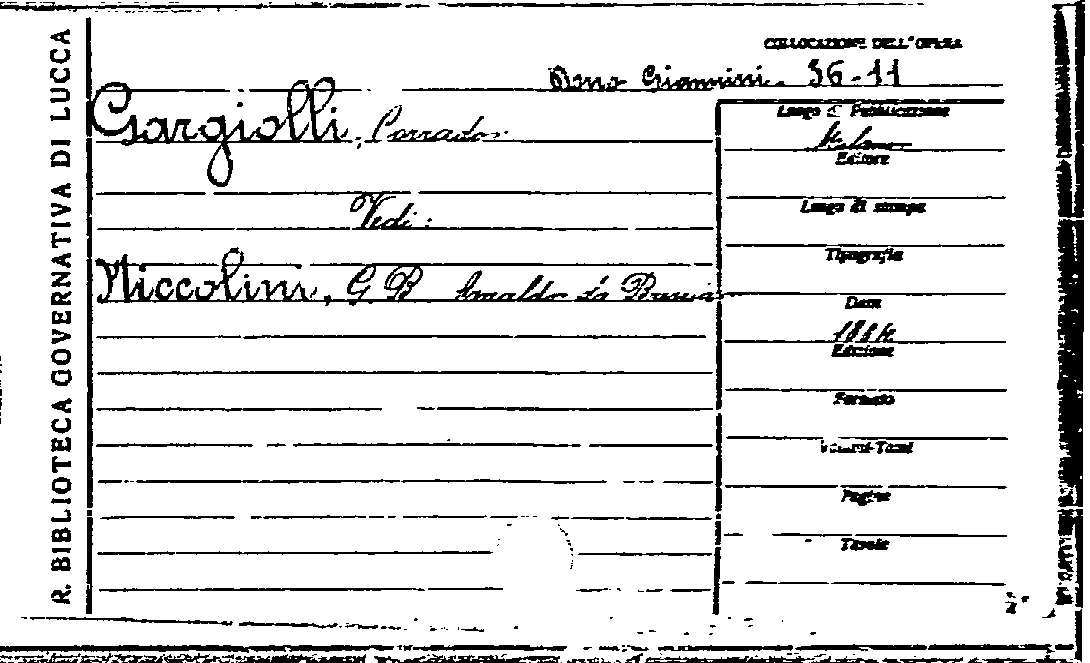 R. BIBLIOTECA GOVERNATIVA DI LUCCA
COLLOCAZIONE DELL'OPERA
Dono Giannini. 36-11
Gargiolli, Corrado.
Vedi:
Niccolini, G B Arnaldo da Brescia
Luogo di Pubblicazione
Milano
Editore
Luogo di stampa
Tipografia
Data
Edizione
Formato
Volumi-Tomi
Pagine
Tavole